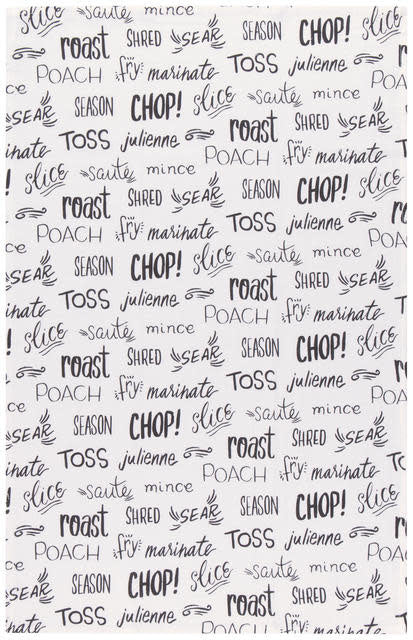 slice saute mince SEASON CHOP! slice
roast SHRED SEAR
POACH fry marinate TOSS julienne
ce SEASON CHOP! slice saute mince POA
SEAR roast SHRED SEAR
inate TOSS julienne POACH fry marinate
! slice saute mince SEASON CHOP! slice
roast SHRED SEAR TOSS julienne
POACH fry marinate
ce SEASON CHOP! slice saute mince POA
SEAR roast SHRED SEAR
inate TOSS julienne POACH fry marinate
! slice saute mince SEASON CHOP! slice
roast SHRED SEAR TOSS julienne
POACH fry marinate
ce SEASON CHOP! slice saute mince
SEAR roast SHRED SEAR
inate TOSS julienne POACH fry marinate
slice saute mince SEASON CHOP! slice
roast SHRED SEAR TOSS julienne
POACH fry marinate
ce SEASON CHOP! slice saute mince
SEAR roast SHRED SEAR
inate TOSS julienne POACH fry marinate